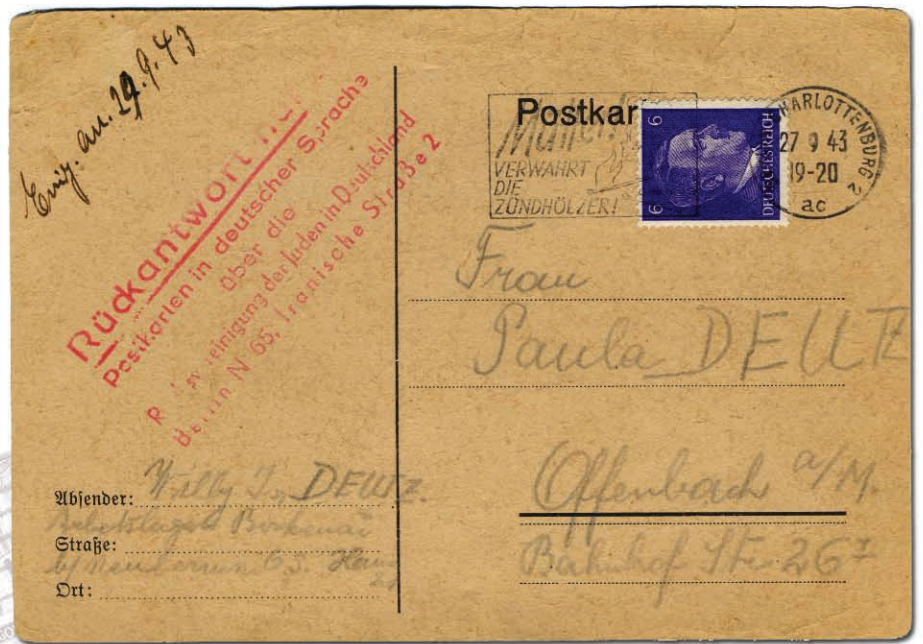 29.9.43
Rückantwort nur
Postkarten in deutscher Sprache
über die
Reichsvereinigung der Juden in Deutschland
Berlin N 65, Iranische Straße 2
Postkar
Mütter!
VERWAHRT
DIE
ZÜNDHÖLZER!
6 6
DEUTSCHES REICH
CHARLOTTENBURG 2
27 9 43
19-20
ac
Frau
Paula DEUTZ
Offenbach a/M.
Bahnhof Str. 26 I
Absender: Willy Isr. DEUTZ.
Straße:
Ort: